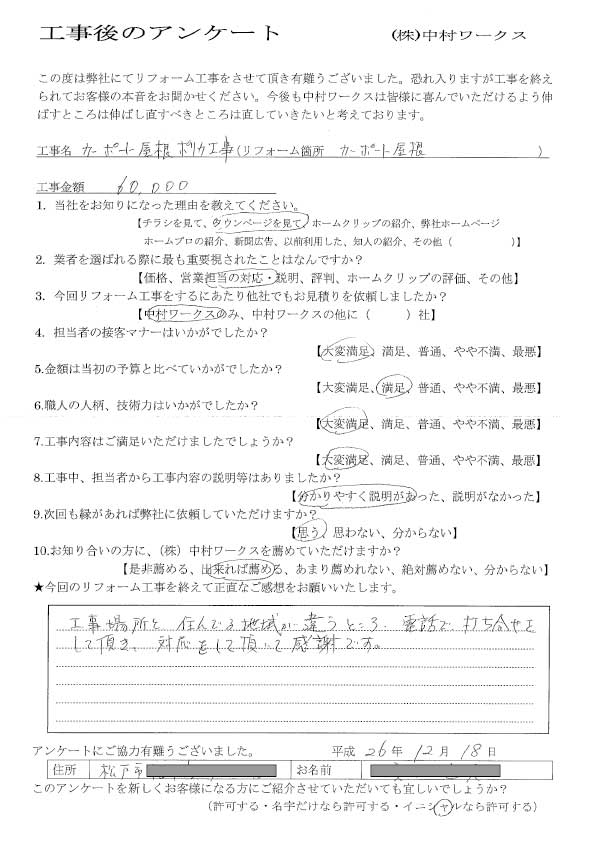 工事後のアンケート (株)中村ワークス
この度は弊社にてリフォーム工事をさせて頂き有難うございました。恐れ入りますが工事を終え
られてお客様の本音をお聞かせください。今後も中村ワークスは皆様に喜んでいただけるよう伸
ばすところは伸ばし直すべきところは直していきたいと考えております。
工事名 カーポート屋根ポリカ工事(リフォーム箇所 カーポート屋根 )
工事金額 60,000
1. 当社をお知りになった理由を教えてください。
【チラシを見て、タウンページを見て、ホームクリップの紹介、弊社ホームページ
ホームプロの紹介、新聞広告、以前利用した、知人の紹介、その他（ ）】
2. 業者を選ばれる際に最も重要視されたことはなんですか？
【価格、営業担当の対応・説明、評判、ホームクリップの評価、その他】
3. 今回リフォーム工事をするにあたり他社でもお見積りを依頼しましたか？
【中村ワークスのみ、中村ワークスの他に（ ）社】
4. 担当者の接客マナーはいかがでしたか？
【大変満足、満足、普通、やや不満、最悪】
5.金額は当初の予算と比べていかがでしたか？
【大変満足、満足、普通、やや不満、最悪】
6.職人の人柄、技術力はいかがでしたか？
【大変満足、満足、普通、やや不満、最悪】
7.工事内容はご満足いただけましたでしょうか？
【大変満足、満足、普通、やや不満、最悪】
8.工事中、担当者から工事内容の説明等はありましたか？
【分かりやすく説明があった、説明がなかった】
9.次回も縁があれば弊社に依頼していただけますか？
【思う、思わない、分からない】
10.お知り合いの方に、（株）中村ワークスを薦めていただけますか？
【是非薦める、出来れば薦める、あまり薦めれない、絶対薦めない、分からない】
★今回のリフォーム工事を終えて正直なご感想をお願いいたします。
工事場所と住んでる地域が違うところ、電話で打ち合せを
して頂き、対応をして頂いて感謝です。
アンケートにご協力有難うございました。 平成 26 年 12 月 18 日
住所 松戸市 お名前
このアンケートを新しくお客様になる方にご紹介させていただいても宜しいでしょうか？
（許可する・名字だけなら許可する・イニシャルなら許可する）